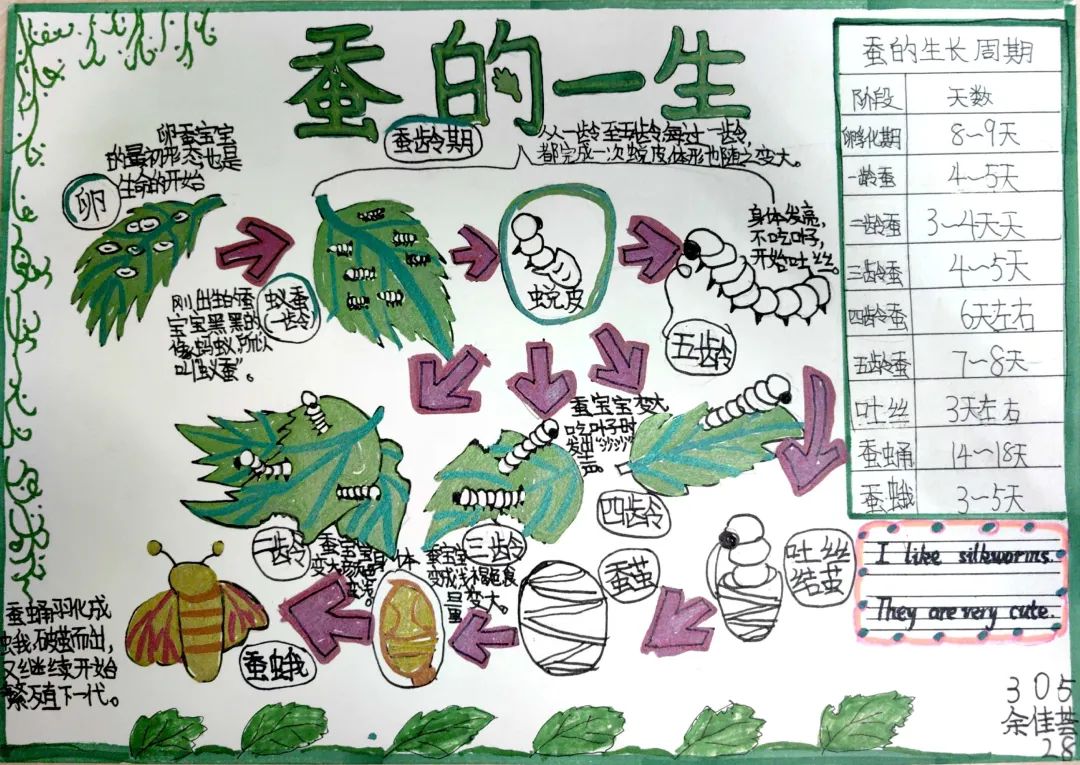 蚕的一生
卵蚕宝宝
的最初形态也是
生命的开始
卵
蚕龄期
从一龄至五龄,每过一龄,
都完成一次蜕皮体形也随之变大。
刚出生的蚕
宝宝黑黑的
像蚂蚁,所以
叫“蚁蚕”。
蚁蚕
一龄
蜕皮
身体发亮,
不吃叶子,
开始吐丝。
五龄
二龄
三龄
蚕宝宝变大
吃叶子时
发出“沙沙”
声
四龄
吐丝
结茧
蚕茧
蚕蛾
蚕蛹羽化成
蛾,破茧而出,
又继续开始
繁殖下一代。
蚕的生长周期
阶段 天数
卵孵化期 8～9天
一龄蚕 4～5天
二龄蚕 3～4天天
三龄蚕 4～5天
四龄蚕 6天左右
五龄蚕 7～8天
吐丝 3天左右
蚕蛹 14～18天
蚕蛾 3～5天
I like silkworms.
They are very cute.
305
余佳芸
28